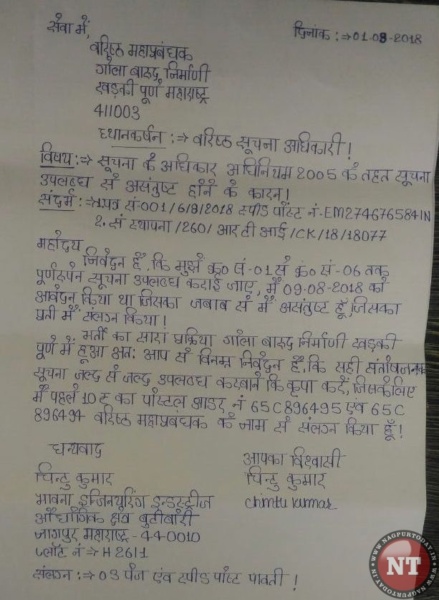 सेवा में,
दिनांक :→ 01-09-2018
वरिष्ठ महाप्रबंधक
गोला बारुद निर्माणी
खड़की पूणे महाराष्ट्र
411003
ध्यानकर्षन :→ वरिष्ठ सूचना अधिकारी !
विषय :→ सूचना के अधिकार अधिनियम 2005 के तहत सूचना
उपलब्ध से असंतुष्ट होने के कारन !
संदर्भ :→ 1. पत्र सं-001/6/8/2018 स्पीड पोस्ट नं-EM274676584IN
2. सं स्थापना /260/ आर टी आई /CK/18/18077
महोदय
निवेदन है, कि मुझे क्र० सं-01 से क्र० सं-06 तक
पूर्णरूपेन सूचना उपलब्ध कराई जाए, मैं 09-08-2018 को
आवेदन किया था जिसका जबाब से में असंतुष्ट हूँ, जिसका
प्रती में संलग्न किया !
भर्ती का सारा प्रक्रिया गोला बारुद निर्माणी खड़की
पूणे में हुआ अतः आप से विनम्र निवेदन है, कि सही संतोषजनक
सूचना जल्द से जल्द उपलब्ध करवाने कि कृपा करें, जिसकेलिए
मैं पहले 10 रु का पोस्टल आडर नं 65C 896495 एवं 65C
896494 वरिष्ठ महाप्रबंधक के नाम से संलग्न किया हूँ !
धन्यवाद
आपका विश्वासी
चिन्टु कुमार
चिन्टु कुमार
भावना इन्जिनयुरिंग इन्डस्ट्रीज
chintu kumar
औधोगिक क्षेत्र बुटीबोरी
नागपुर महाराष्ट्र - 440010
प्लोट नं → H 2611
संलग्न :→ 03 पेज एवं स्पीड पोस्ट पावती !
NT
WWW.NAGPURTODAY.IN